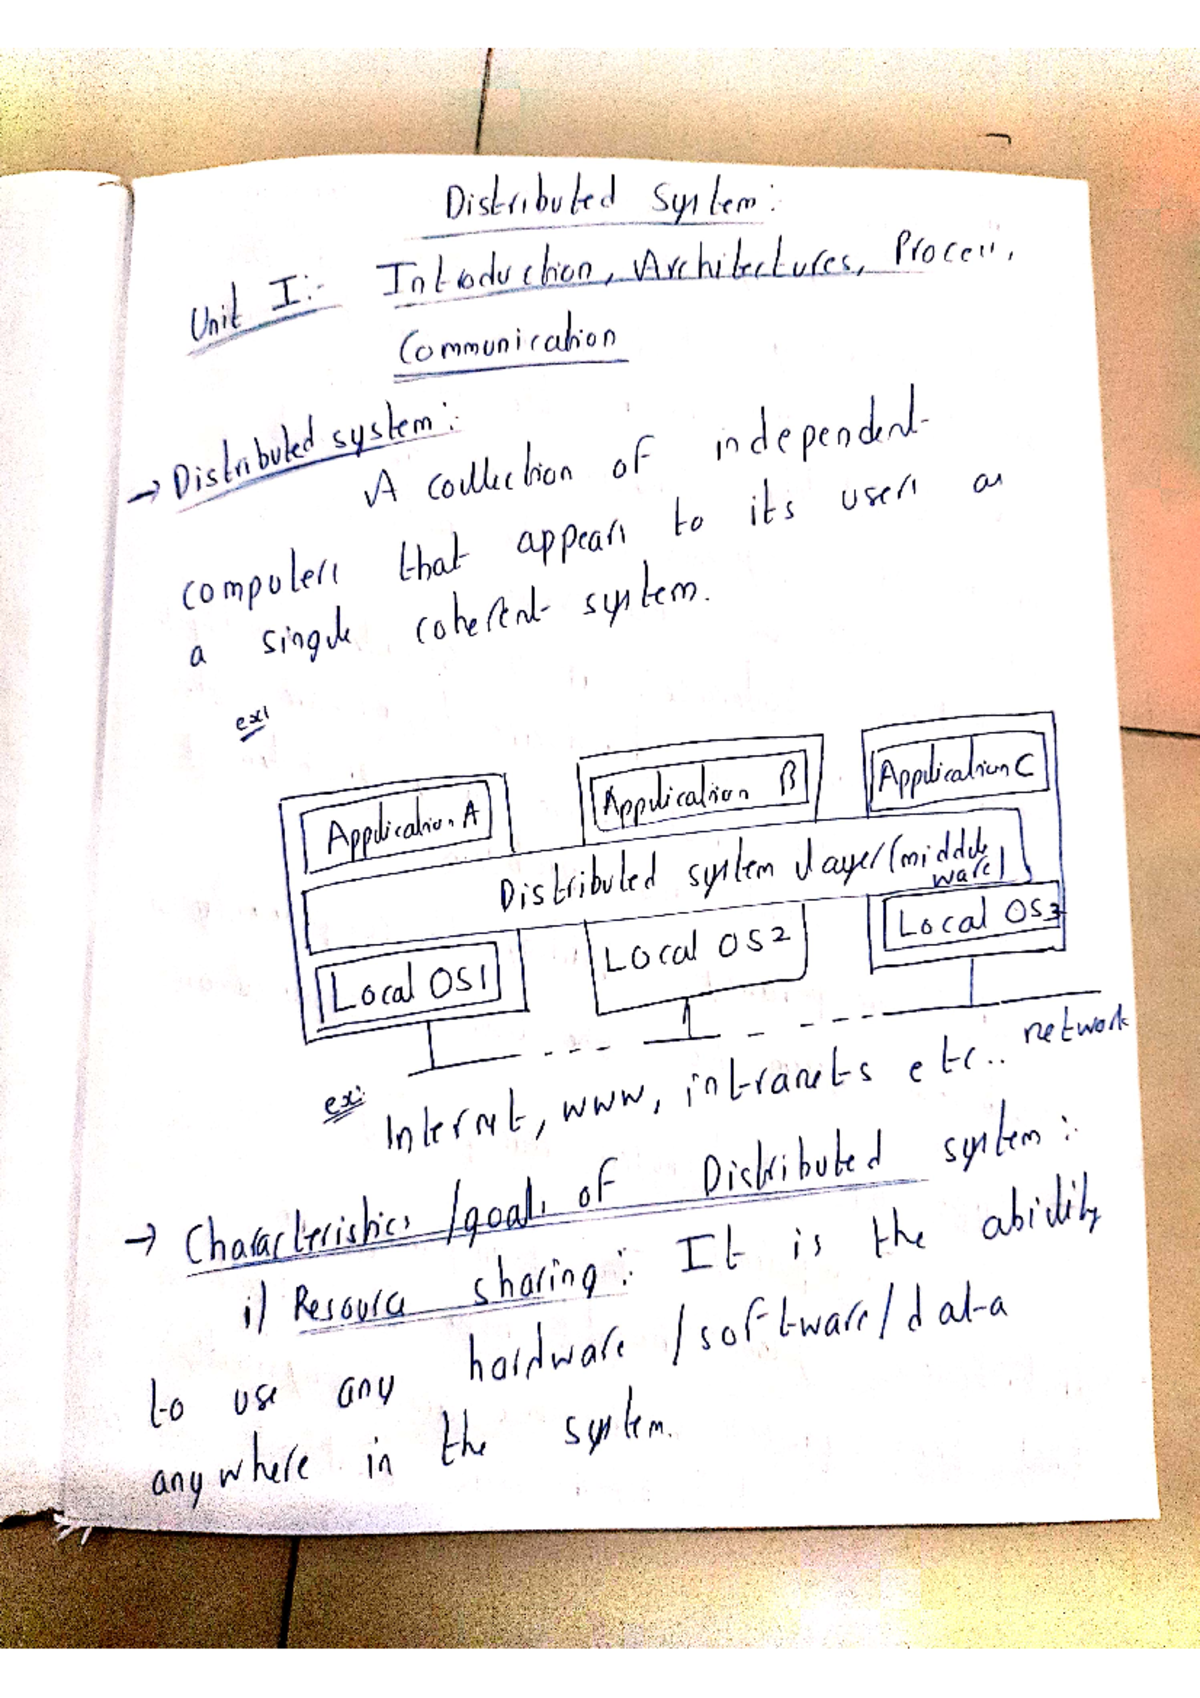 Distributed System:
Unit I:- Introduction, Architectures, Process,
Communication
→ Distributed system:
A collection of independent
computers that appears to its users as
a single coherent system.
ex:
Application A
Application B
Application C
Distributed system layer (middle
ware)
Local OS1
Local OS2
Local OS3
network
ex: Internet, www, intranets etc..
→ Characteristics /goals of Distributed system:
i) Resource sharing: It is the ability
to use any hardware /software/data
anywhere in the system.